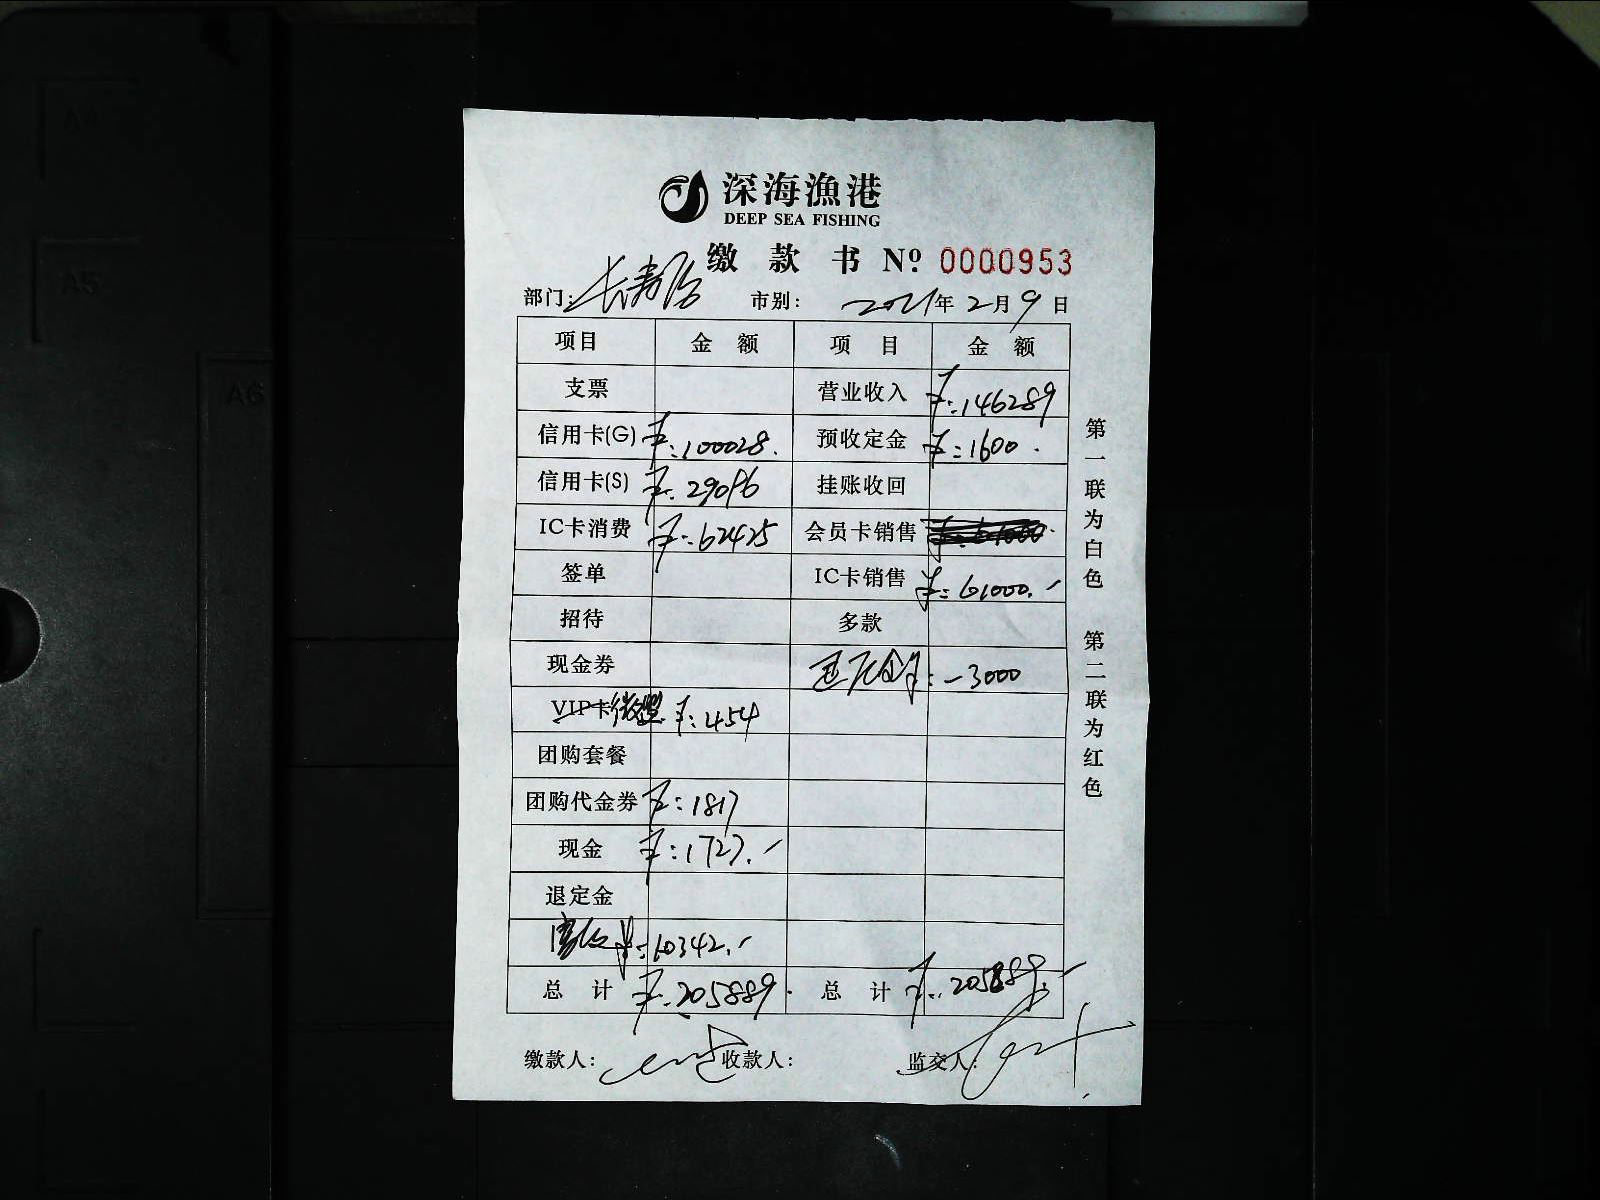 深海漁港
DEEP SEA FISHING
缴款书 Nº 0000953
部门: 长寿路 市别: 2021年2月9日
项目 金额 项目 金额
支票 营业收入 ¥:146289
信用卡(G) ¥:100028. 预收定金 ¥:1600.
信用卡(S) ¥:29096 挂账收回
IC卡消费 ¥:62425 会员卡销售
签单 IC卡销售 ¥:61000.-
招待 多款
现金券 退定金 ¥:-3000
VIP卡 ¥:454
团购套餐
团购代金券 ¥:1817
现金 ¥:1727.-
退定金
¥:10342.-
总计 ¥:205889. 总计 ¥:205889.-
缴款人: 收款人: 监交人:
第一联为白色 第二联为红色
A5
A6